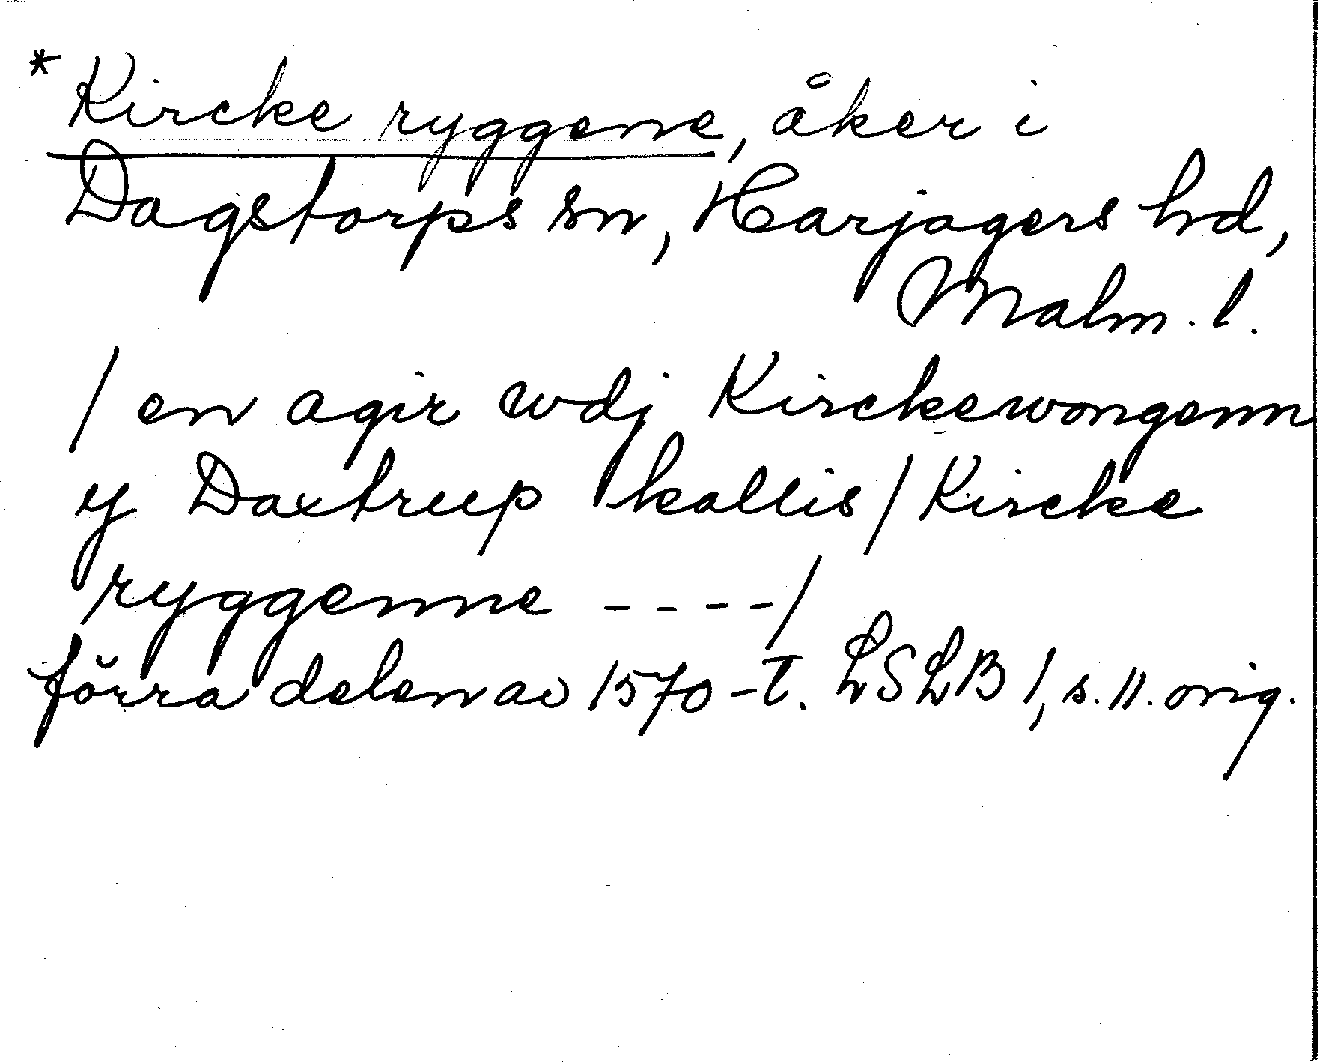 * Kircke ryggene, åker i
Dagstorps sn, Harjagers hd,
Malm. l.
/ en agir wdj Kirckewongenn
y Daxtrup kallis / Kircke
ryggenne - - - - /
förra delen av 1570-t. LSLB 1, s. 11. orig.